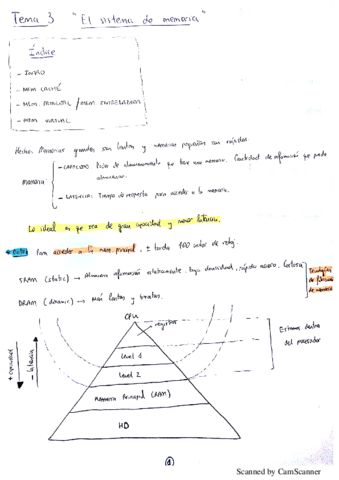 Tema 3 "El sistema de memoria"
Índice
- INTRO
- MEM. CACHÉ
- MEM. PRINCIPAL / MEM. ENTRELAZADA
- MEM. VIRTUAL
Hechos: Memorias grandes son lentas y memorias pequeñas son rápidas.
Memoria
- CAPACIDAD: de almacenamiento que tiene una memoria. Cantidad de información que puede
almacenar.
- LATENCIA: Tiempo de respuesta para acceder a la memoria.
Lo ideal es que sea de gran capacidad y menor latencia.
Para acceder a la mem principal, ± tarda 100 ciclos de reloj.
SRAM (static) → Almacena información estáticamente, baja densidad, rápido acceso,
DRAM (dynamic) → Más lentas y baratas.
Tecnologías
de
de memoria
CPU
registros
Level 1
Level 2
Memoria Principal (RAM)
HD
+ capacidad
- latencia
Estamos dentro
del procesador
Scanned by CamScanner